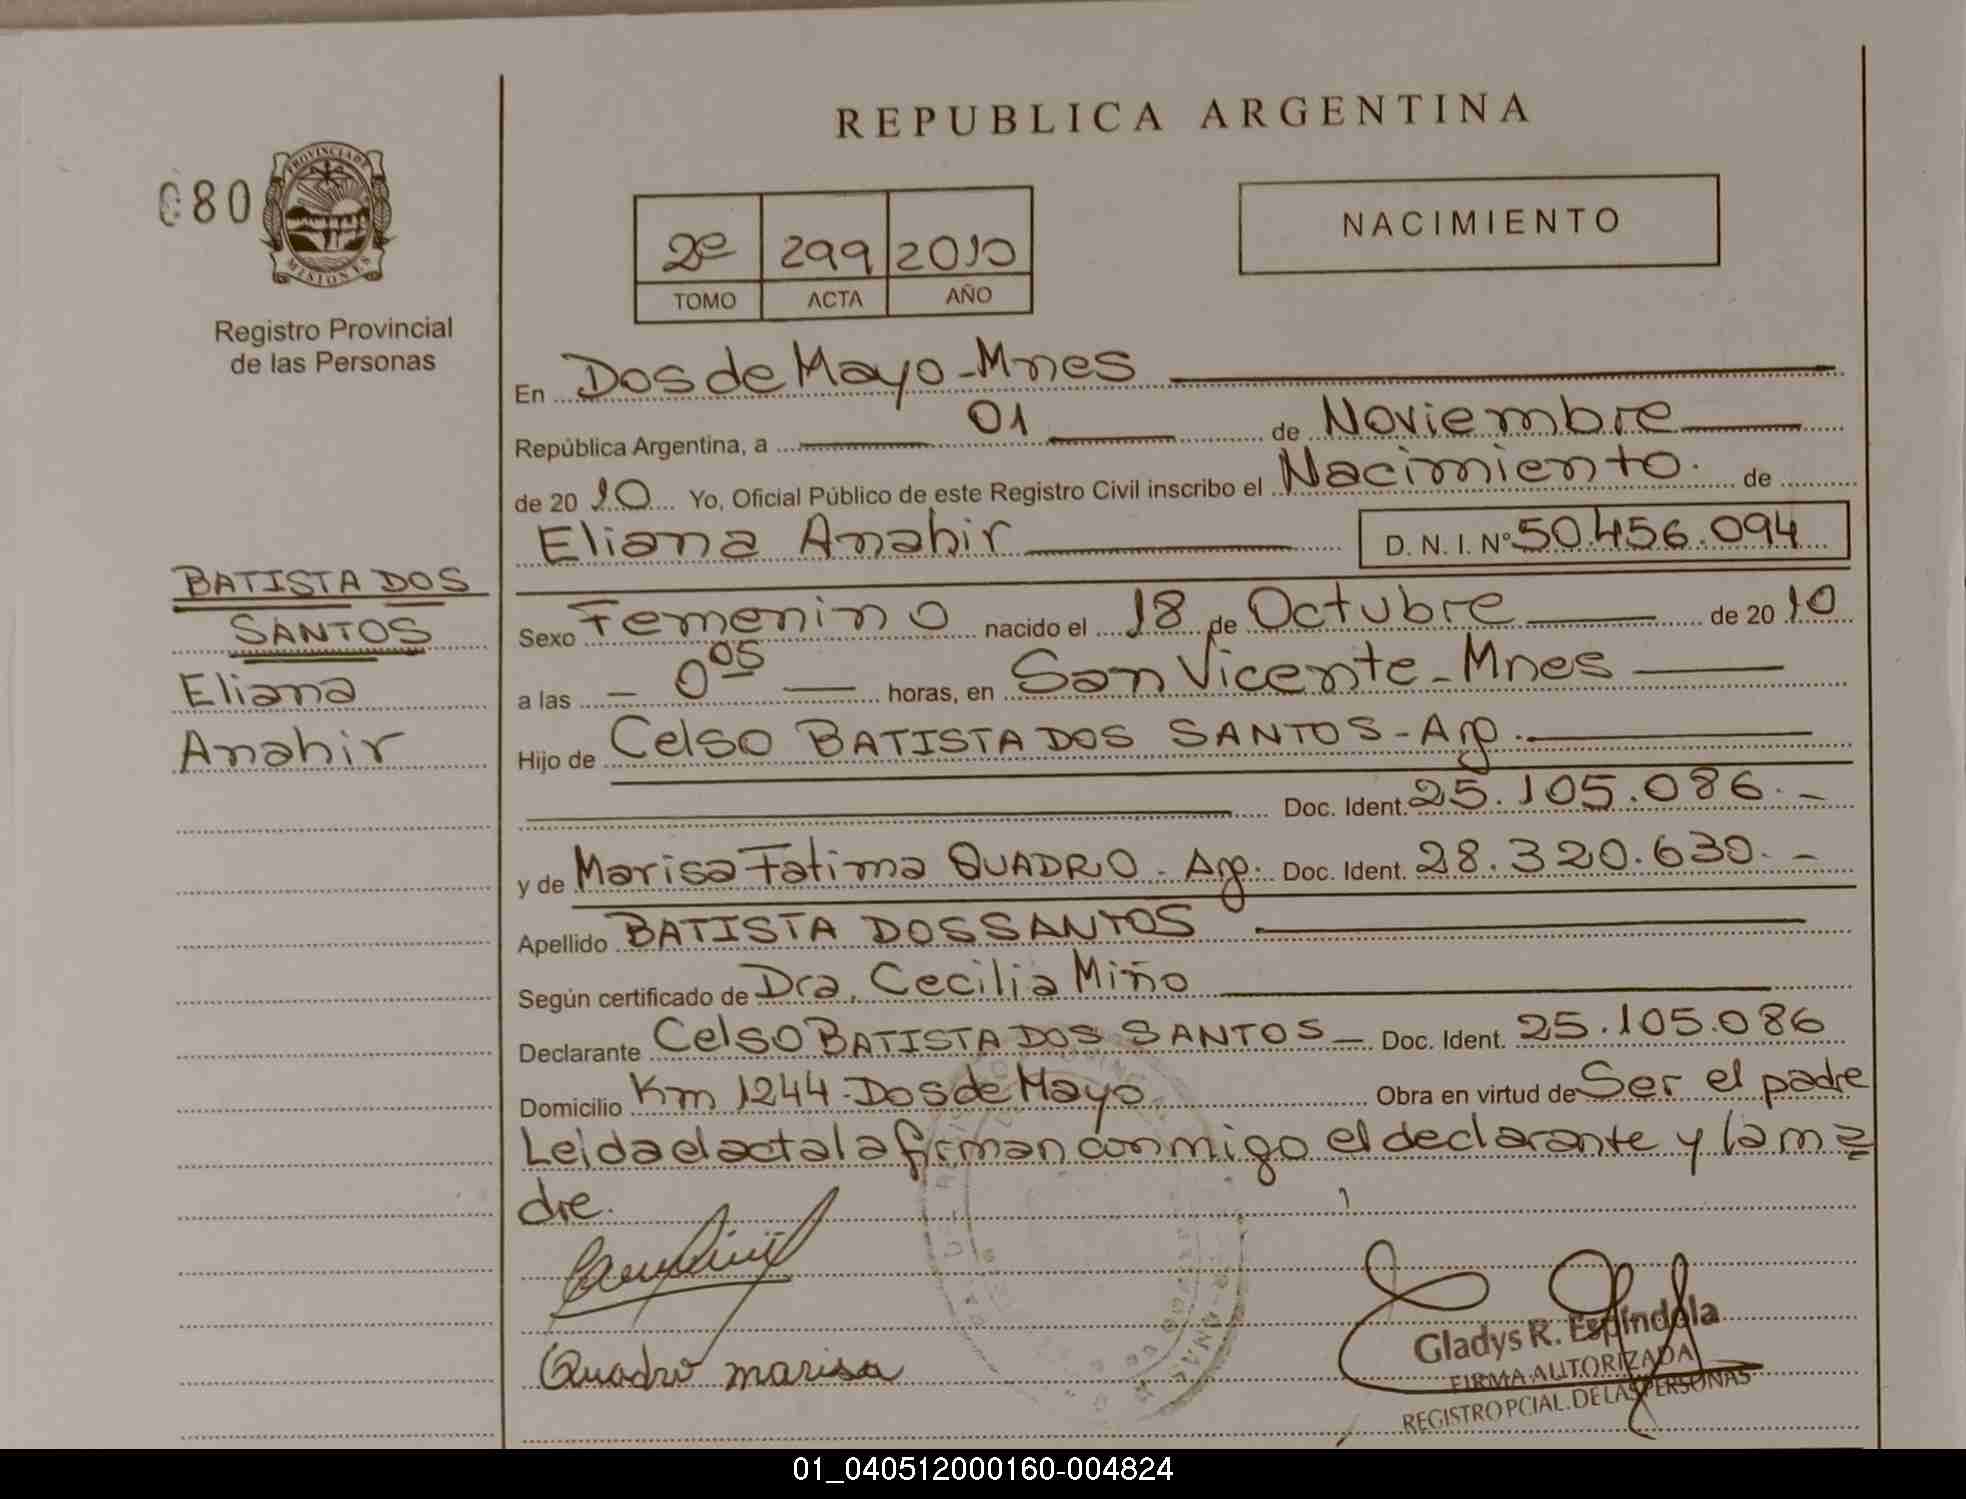 REPUBLICA ARGENTINA
080
PROVINCIA DE
MISIONES
Registro Provincial
de las Personas
2º 299 2010
TOMO ACTA AÑO
NACIMIENTO
En Dos de Mayo - Mnes
República Argentina, a 01 de Noviembre
de 2010 Yo, Oficial Público de este Registro Civil inscribo el Nacimiento. de
Eliana Anahir D. N. I. Nº 50.456.094
BATISTA DOS
SANTOS
Eliana
Anahir
Sexo Femenino nacido el 18 de Octubre de 2010
a las - 0 05 horas, en San Vicente - Mnes
Hijo de Celso BATISTA DOS SANTOS - Arg.
Doc. Ident. 25.105.086. -
y de Marisa Fatima QUADRO - Arg. Doc. Ident. 28.320.630. -
Apellido BATISTA DOS SANTOS
Según certificado de Dra. Cecilia Miño
Declarante Celso BATISTA DOS SANTOS - Doc. Ident. 25.105.086
Domicilio Km 1244 - Dos de Mayo Obra en virtud de Ser el padre
Leida el acta la firman conmigo el declarante y la ma
dre.
Quadro marisa
Gladys R. Espíndola
FIRMA AUTORIZADA
REGISTRO PCIAL. DE LAS PERSONAS
01_040512000160-004824